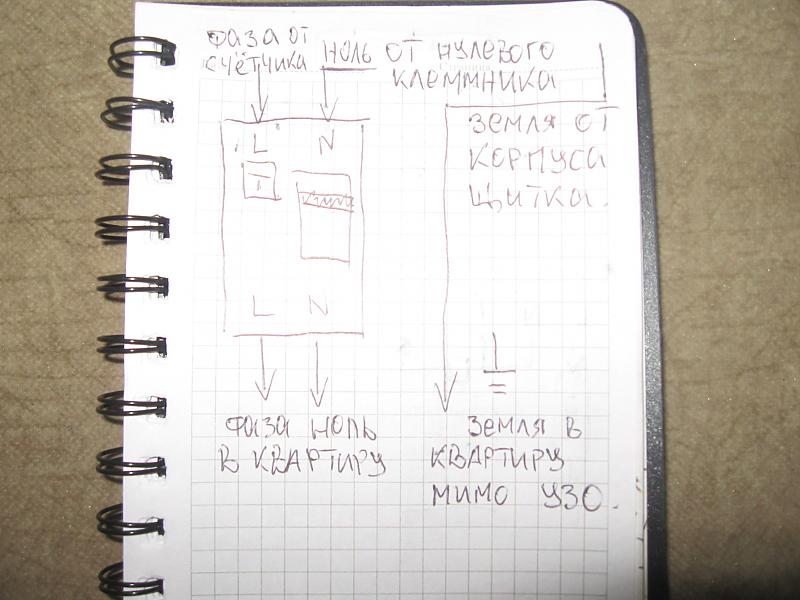 ФАЗА ОТ
СЧЁТЧИКА НОЛЬ ОТ НУЛЕВОГО
КЛЕММНИКА
L N
ЗЕМЛЯ ОТ
КОРПУСА
ЩИТКА.
T
L N
ФАЗА НОЛЬ
В КВАРТИРУ
ЗЕМЛЯ В
КВАРТИРУ
МИМО УЗО.